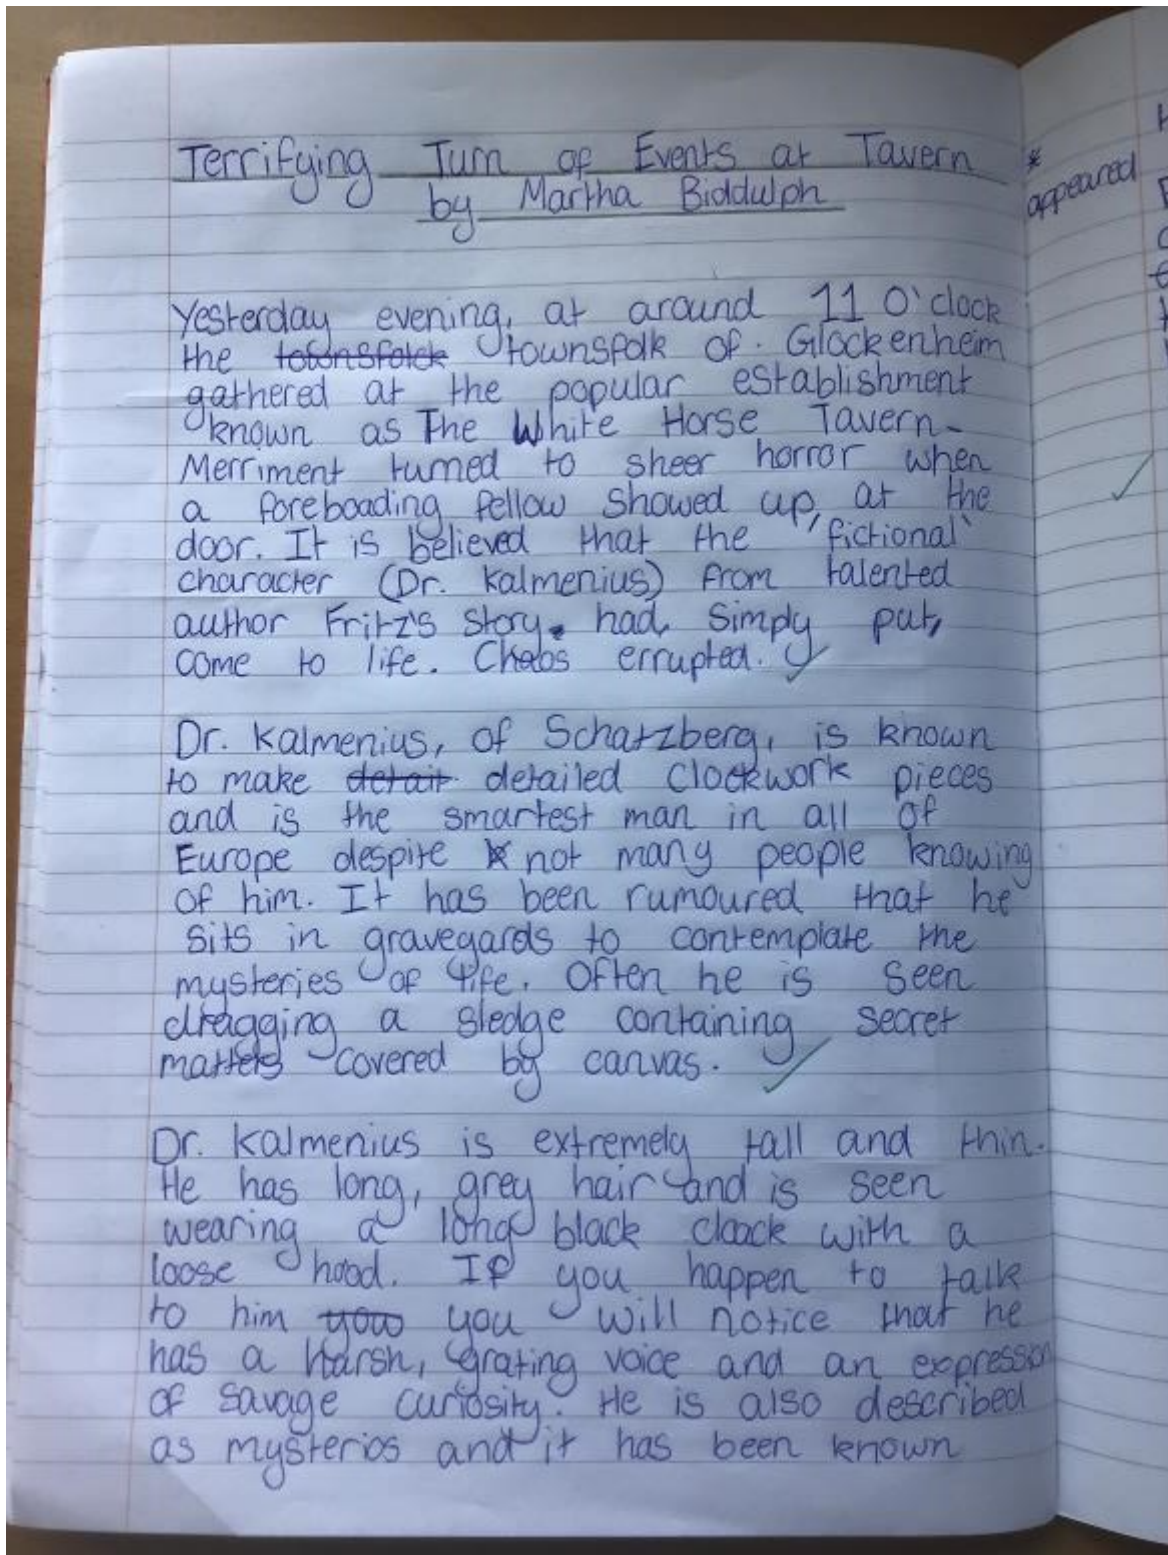 Terrifying Turn of Events at Tavern
by Martha Biddulph
*
appeared
Yesterday evening, at around 11 O'clock
the townsfolck townsfolk of Glockenheim
gathered at the popular establishment
known as The White Horse Tavern.
Merriment turned to sheer horror when
a foreboading fellow showed up, at the
door. It is believed that the 'fictional'
character (Dr. Kalmenius) from talented
author Fritz's story. had, simply put,
come to life. Chaos errupted.
Dr. Kalmenius, of Schatzberg, is known
to make detait detailed clockwork pieces
and is the smartest man in all of
Europe despite not many people knowing
of him. It has been rumoured that he
sits in gravegards to contemplate the
mysteries of life. Often he is seen
dragging a sledge containing secret
matters covered by canvas.
Dr. Kalmenius is extremely tall and thin.
He has long, grey hair and is seen
wearing a long black cloack with a
loose hood. If you happen to talk
to him you you will notice that he
has a harsh, grating voice and an expression
of savage curiosity. He is also described
as mysterios and it has been known